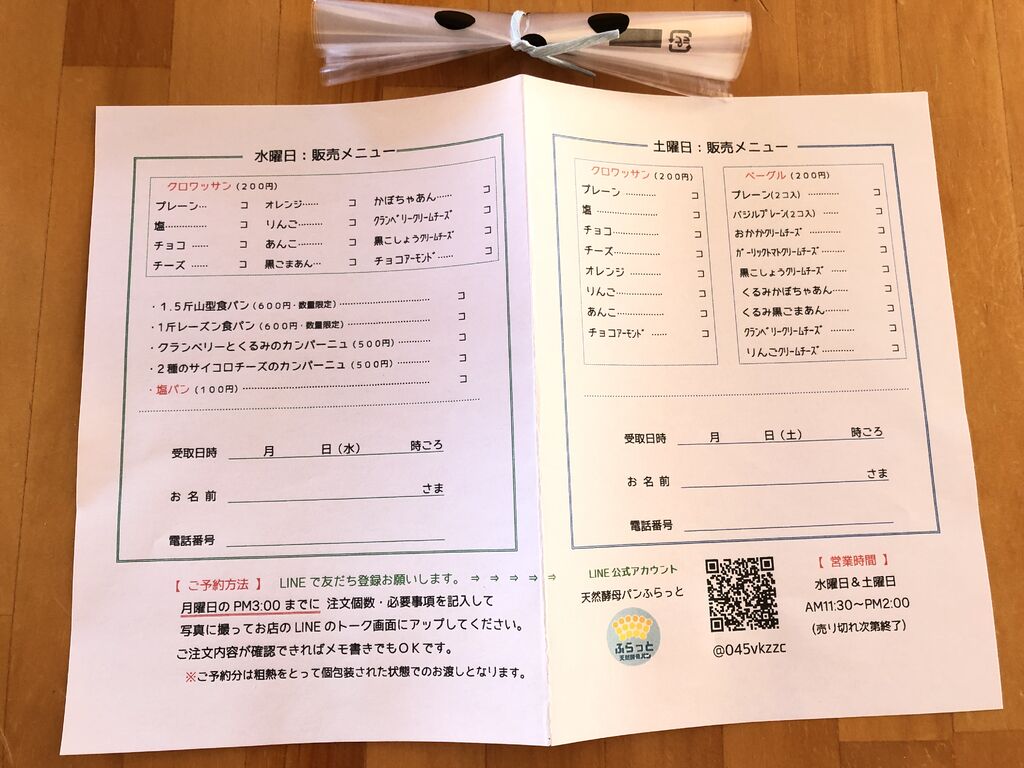 水曜日：販売メニュー
クロワッサン（200円）
プレーン… コ オレンジ…… コ かぼちゃあん…… コ
塩…………… コ りんご……… コ クランベリークリームチーズ コ
チョコ …… コ あんこ……… コ 黒こしょうクリームチーズ コ
チーズ …… コ 黒ごまあん… コ チョコアーモンド…… コ
・1.5斤山型食パン（600円・数量限定）………………… コ
・1斤レーズン食パン（600円・数量限定）………………… コ
・クランベリーとくるみのカンパーニュ（500円）………… コ
・2種のサイコロチーズのカンパーニュ（500円）………… コ
・塩パン（100円）……………………………………… コ
受取日時 月 日（水） 時ごろ
お 名 前 さま
電話番号
【 ご予約方法 】 LINEで友だち登録お願いします。 ⇒ ⇒ ⇒ ⇒ ⇒
月曜日のPM3:00までに 注文個数・必要事項を記入して
写真に撮ってお店のLINEのトーク画面にアップしてください。
ご注文内容が確認できればメモ書きでもOKです。
※ご予約分は粗熱をとって個包装された状態でのお渡しとなります。
土曜日：販売メニュー
クロワッサン（200円）
プレーン ………… コ
塩 ………………… コ
チョコ…………… コ
チーズ…………… コ
オレンジ ………… コ
りんご…………… コ
あんこ…………… コ
チョコアーモンド …… コ
ベーグル（200円）
プレーン(2コ入) ………… コ
バジルプレーン(2コ入) …… コ
おかかクリームチーズ ………… コ
ガーリックトマトクリームチーズ……… コ
黒こしょうクリームチーズ …… コ
くるみかぼちゃあん…… コ
くるみ黒ごまあん……… コ
クランベリークリームチーズ ……… コ
りんごクリームチーズ………… コ
受取日時 月 日（土） 時ごろ
お 名 前 さま
電話番号
LINE公式アカウント
天然酵母パンふらっと
ふらっと
天然酵母パン
@045vkzzc
【 営業時間 】
水曜日＆土曜日
AM11:30～PM2:00
（売り切れ次第終了）